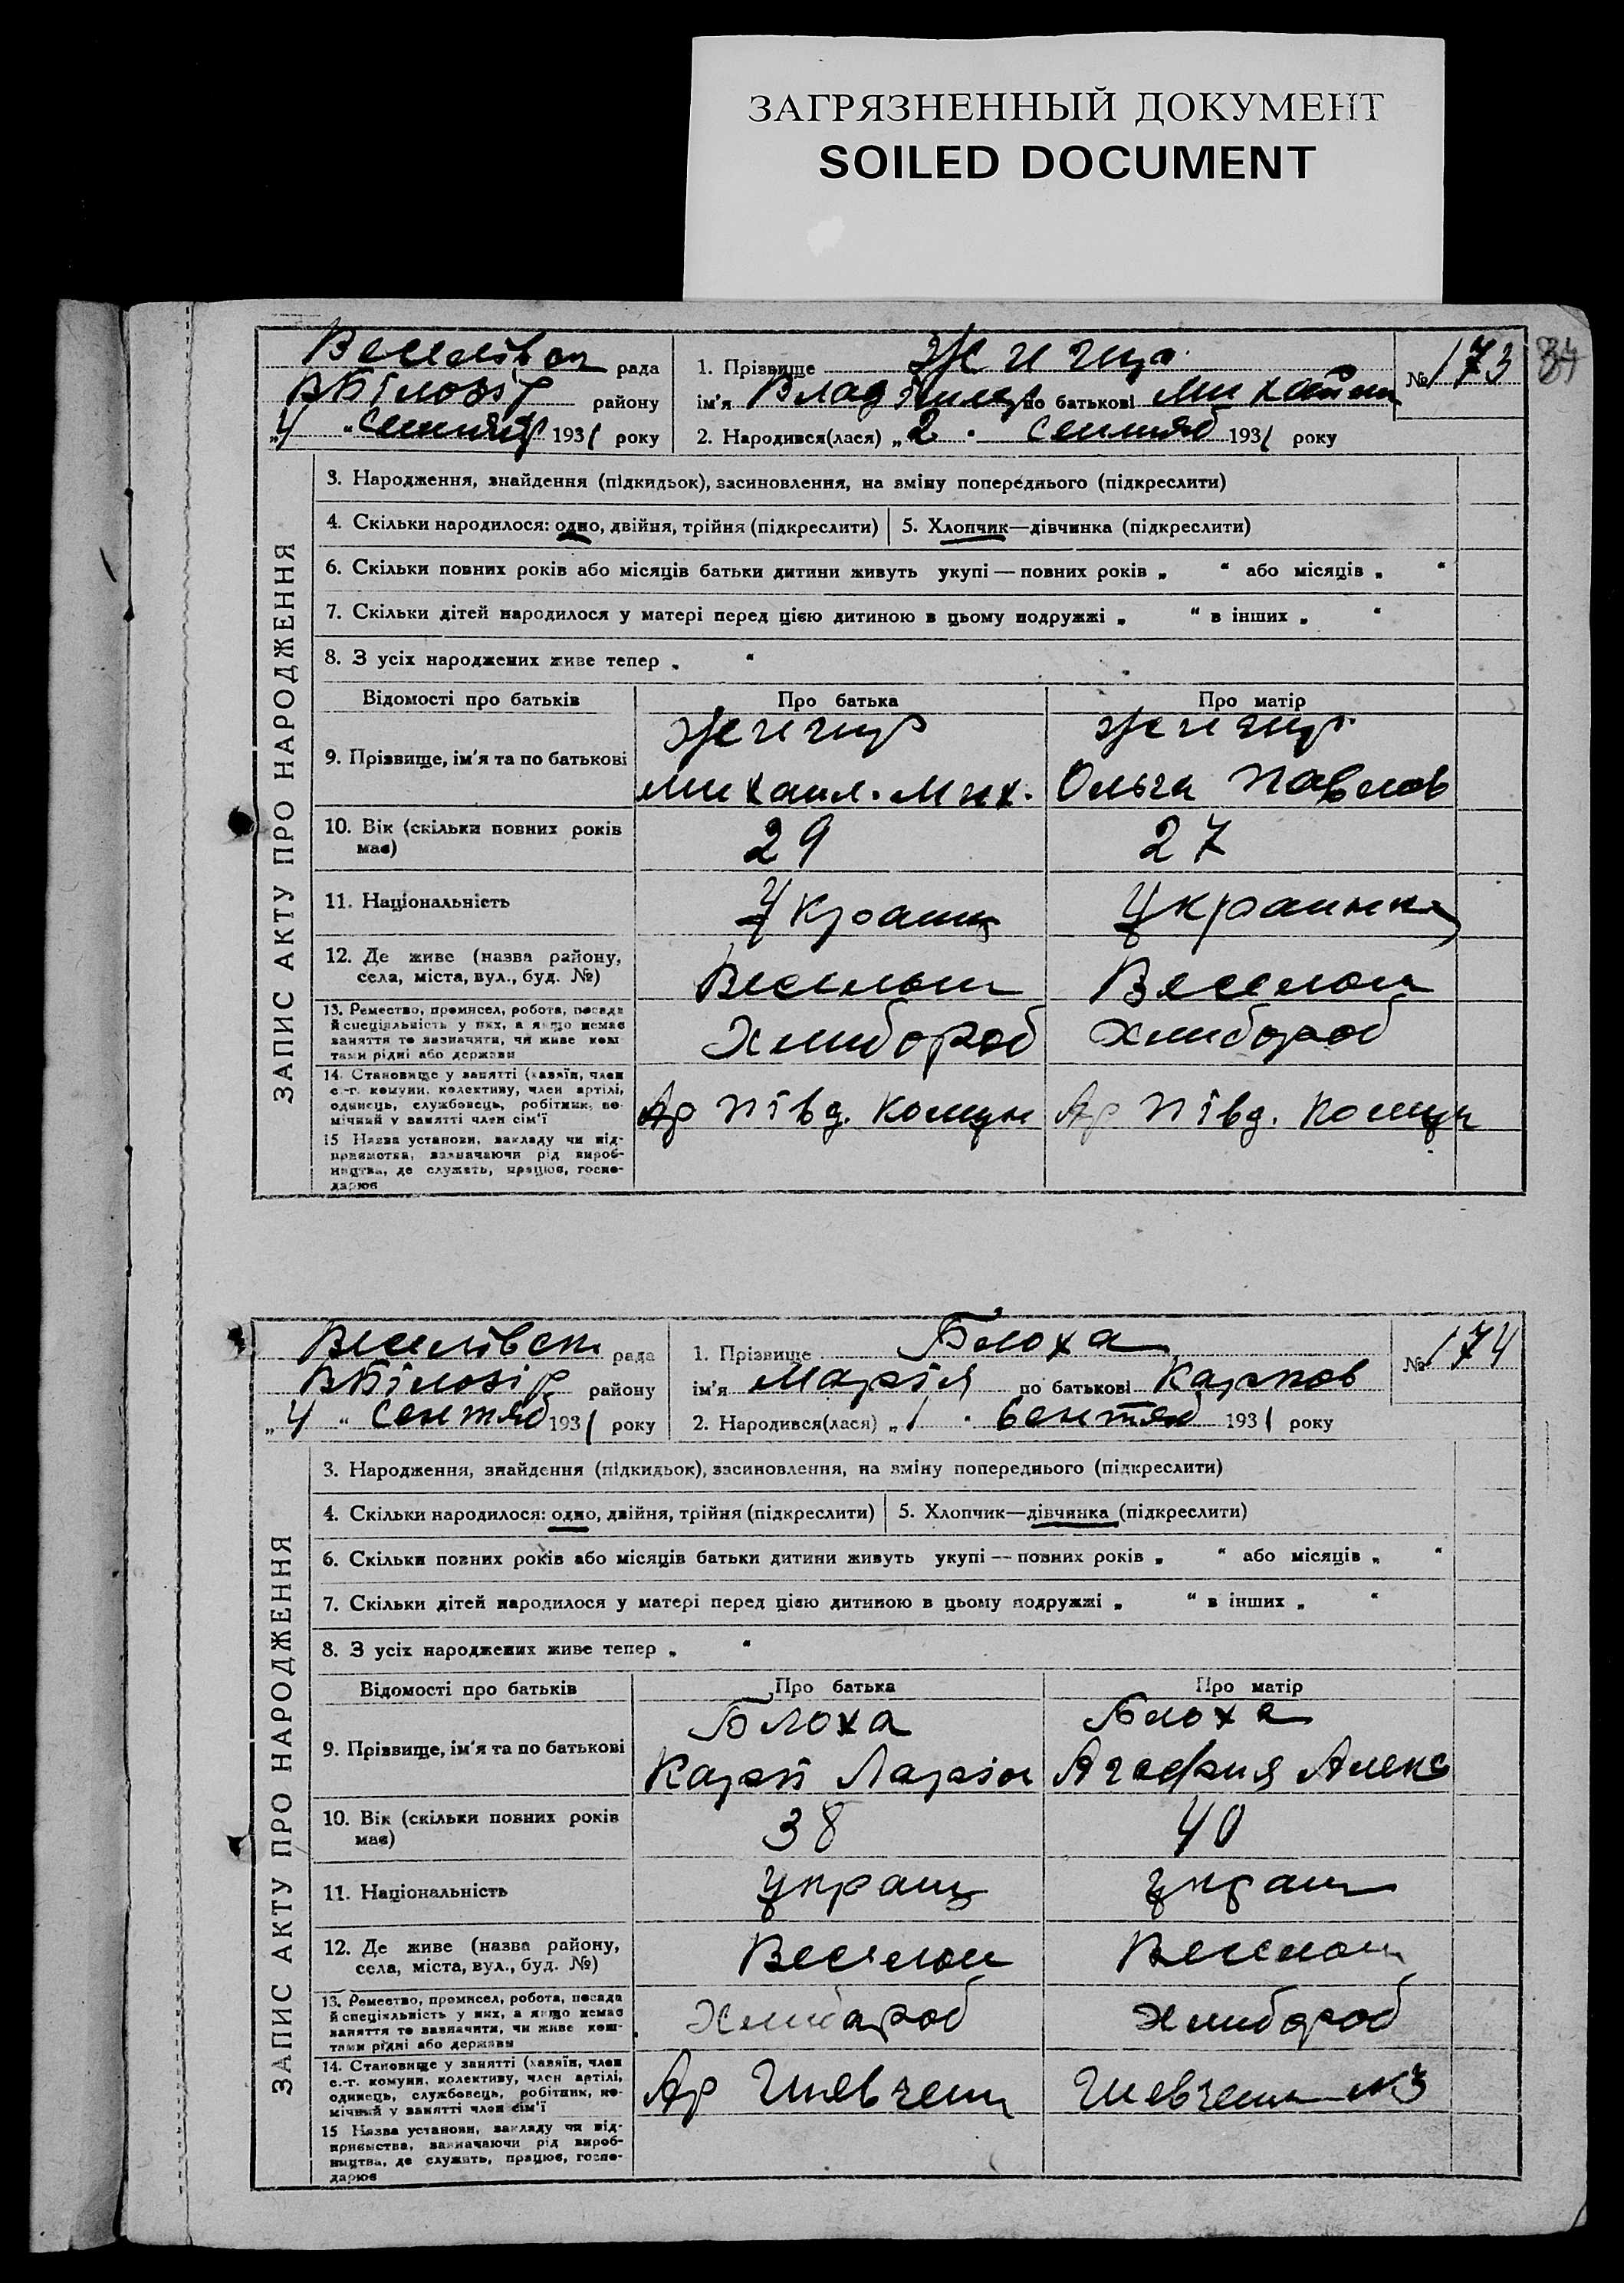 ЗАГРЯЗНЕННЫЙ ДОКУМЕНТ
SOILED DOCUMENT
84
ЗАПИС АКТУ ПРО НАРОДЖЕННЯ
рада
ВБілозір району
„4 “ 1931 року
1. Прізвище
ім'я по батькові
2. Народився(лася) „2 “ сентяб 1931 року
№ 173
3. Народження, знайдення (підкидьок), засиновлення, на зміну попереднього (підкреслити)
4. Скільки народилося: одно, двійня, трійня (підкреслити) 5. Хлопчик—дівчинка (підкреслити)
6. Скільки повних років або місяців батьки дитини живуть укупі — повних років „ “ або місяців „ “
7. Скільки дітей народилося у матері перед цією дитиною в цьому подружжі „ “ в інших „ “
8. З усіх народжених живе тепер „ “
Відомості про батьків Про батька Про матір
9. Прізвище, ім'я та по батькові
Михаил. Мих. Ольга Павлов
10. Вік (скільки повних років має) 29 27
11. Національність Украинц Украинка
12. Де живе (назва району, села, міста, вул., буд. №)
13. Ремество, промисел, робота, посада й спеціяльність у них, а якщо немає заняття то зазначити, чи живе коштами рідні або держави Хлибороб Хлибороб
14. Становище у занятті (хазяїн, член с.-г. комуни, колективу, член артілі, одинець, службовець, робітник, помічний у занятті член сім'ї Ар Півд. Комун Ар Півд. Комун
15 Назва установи, закладу чи підприємства, зазначаючи рід виробництва, де служить, працює, господарює
ЗАПИС АКТУ ПРО НАРОДЖЕННЯ
Веселівск рада
ВБілозір району
„4 “ Сентяб 1931 року
1. Прізвище Блоха
ім'я Марія по батькові Карпов
2. Народився(лася) „1 “ Сентяб 1931 року
№ 174
3. Народження, знайдення (підкидьок), засиновлення, на зміну попереднього (підкреслити)
4. Скільки народилося: одно, двійня, трійня (підкреслити) 5. Хлопчик—дівчинка (підкреслити)
6. Скільки повних років або місяців батьки дитини живуть укупі — повних років „ “ або місяців „ “
7. Скільки дітей народилося у матері перед цією дитиною в цьому подружжі „ “ в інших „ “
8. З усіх народжених живе тепер „ “
Відомості про батьків Про батька Про матір
Блоха Блоха
9. Прізвище, ім'я та по батькові Карп Ларіон Алекс
10. Вік (скільки повних років має) 38 40
11. Національність украинц украин
12. Де живе (назва району, села, міста, вул., буд. №)
13. Ремество, промисел, робота, посада й спеціяльність у них, а якщо немає заняття то зазначити, чи живе коштами рідні або держави Хлибороб Хлибороб
14. Становище у занятті (хазяїн, член с.-г. комуни, колективу, член артілі, одинець, службовець, робітник, помічний у занятті член сім'ї Ар Шевченк Шевченк №3
15 Назва установи, закладу чи підприємства, зазначаючи рід виробництва, де служить, працює, господарює